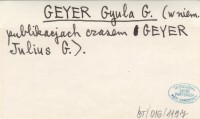 GEYER Gyula G. (w niem.
publikacjach czasem GEYER
Julius G.).